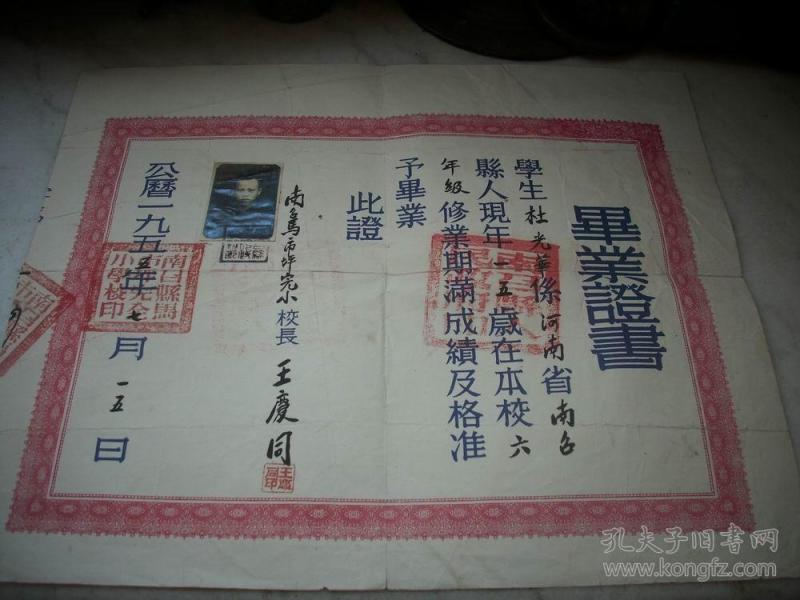 畢業證書
學生杜光華係河南省南召
縣人現年一五歲在本校六
年級修業期滿成績及格准
予畢業
此證
南召馬市坪完小校長 王慶同
王慶同印
公曆一九五五年七月一五日
南召縣馬市坪完全小學校印
孔夫子旧书网
www.kongfz.com